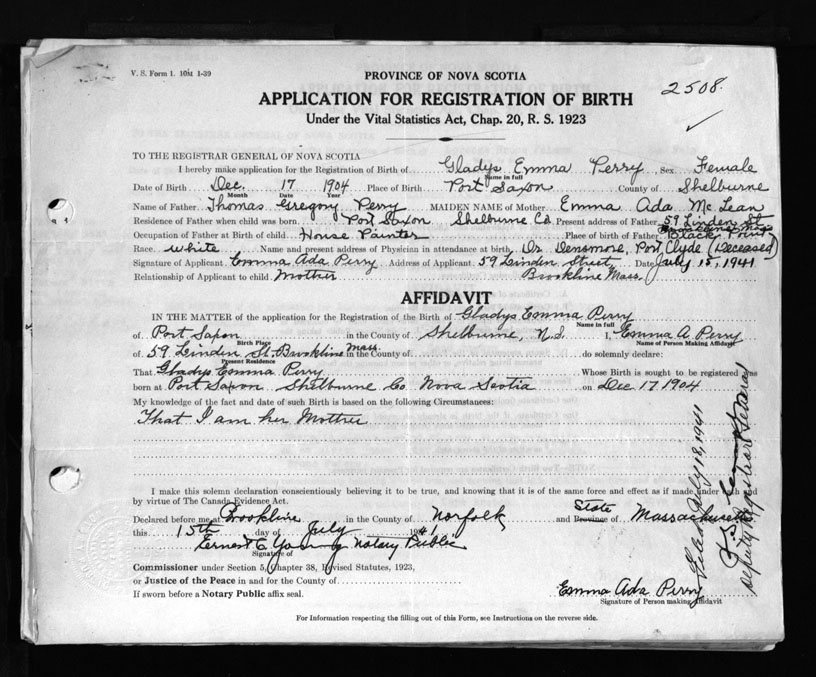 V. S. Form 1. 10M 1-39
PROVINCE OF NOVA SCOTIA
2508.
APPLICATION FOR REGISTRATION OF BIRTH
Under the Vital Statistics Act, Chap. 20, R. S. 1923
TO THE REGISTRAR GENERAL OF NOVA SCOTIA
I hereby make application for the Registration of Birth of Gladys Emma Perry Sex Female
Name in full
Date of Birth Dec. 17 1904 Place of Birth Port Saxon County of Shelburne
Month Date Year
Name of Father Thomas Gregory Perry MAIDEN NAME of Mother Emma Ada McLean
Residence of Father when child was born Port Saxon Shelburne Co. Present address of Father 59 Linden St
Brookline Mass
Occupation of Father at Birth of child House Painter Place of birth of Father Black Point
Race white Name and present address of Physician in attendance at birth Dr. Densmore, Port Clyde (Deceased)
Signature of Applicant Emma Ada Perry Address of Applicant 59 Linden Street, Date July 15, 1941
Relationship of Applicant to child Mother Brookline Mass.
AFFIDAVIT
IN THE MATTER of the application for the Registration of the Birth of Gladys Emma Perry
Name in full
of Port Saxon in the County of Shelburne, N.S. I, Emma A. Perry
Birth Place Name of Person Making Affidavit
of 59 Linden St. Brookline Mass. in the County of do solemnly declare:
Present Residence
That Gladys Emma Perry Whose Birth is sought to be registered was
born at Port Saxon Shelburne Co Nova Scotia on Dec 17 1904
My knowledge of the fact and date of such Birth is based on the following Circumstances:
That I am her Mother
I make this solemn declaration conscientiously believing it to be true, and knowing that it is of the same force and effect as if made under oath and
by virtue of The Canada Evidence Act.
Declared before me at Brookline in the County of Norfolk and State Province of Massachusetts
this 15th day of July 1941
Ernest C. Young Notary Public
Signature of
Commissioner under Section 5, Chapter 38, Revised Statutes, 1923,
or Justice of the Peace in and for the County of
If sworn before a Notary Public affix seal.
Emma Ada Perry
Signature of Person making Affidavit
For Information respecting the filling out of this Form, see Instructions on the reverse side.
Filed July 18, 1941
Deputy Registrar General